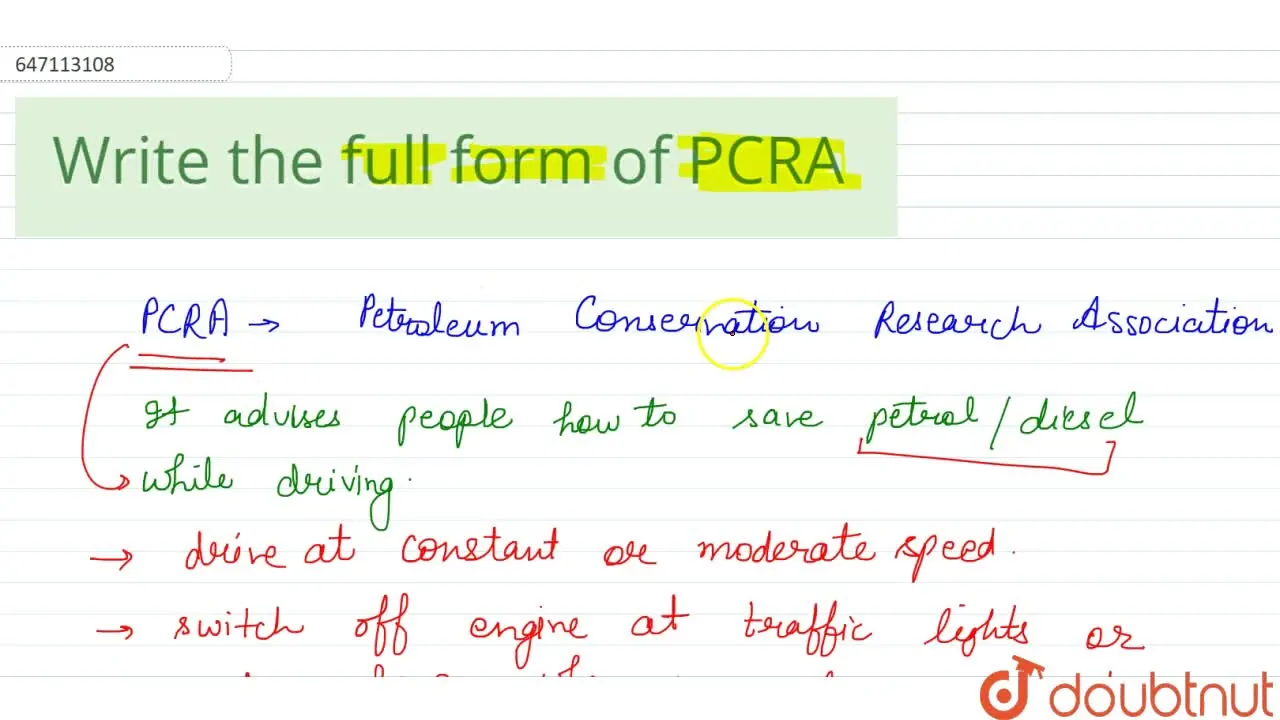 647113108
Write the full form of PCRA
PCRA → Petroleum Conservation Research Association
It advises people how to save petrol / diesel
while driving.
→ drive at constant or moderate speed.
→ switch off engine at traffic lights or
doubtnut